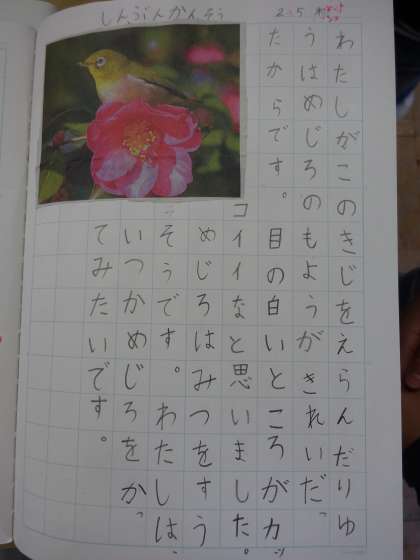 しんぶんかんそう
2-5
わたしがこのきじをえらんだりゆ
うはめじろのもようがきれいだっ
たからです。目の白いところがカッ
コイイなと思いました。
めじろはみつをすう
そうです。わたしは、
いつかめじろをかっ
てみたいです。